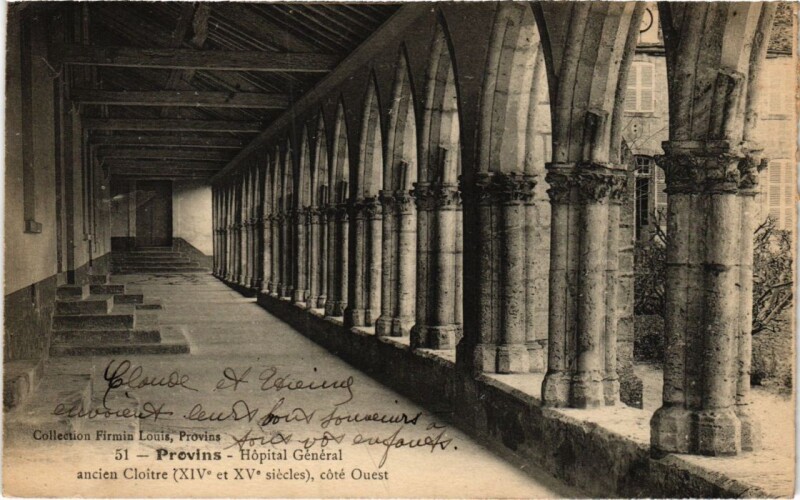 Claude et Etienne
envoient leurs bons souvenirs à
tous vos enfants.
Collection Firmin Louis, Provins
51 — Provins - Hôpital Général
ancien Cloître (XIVᵉ et XVᵉ siècles), côté Ouest